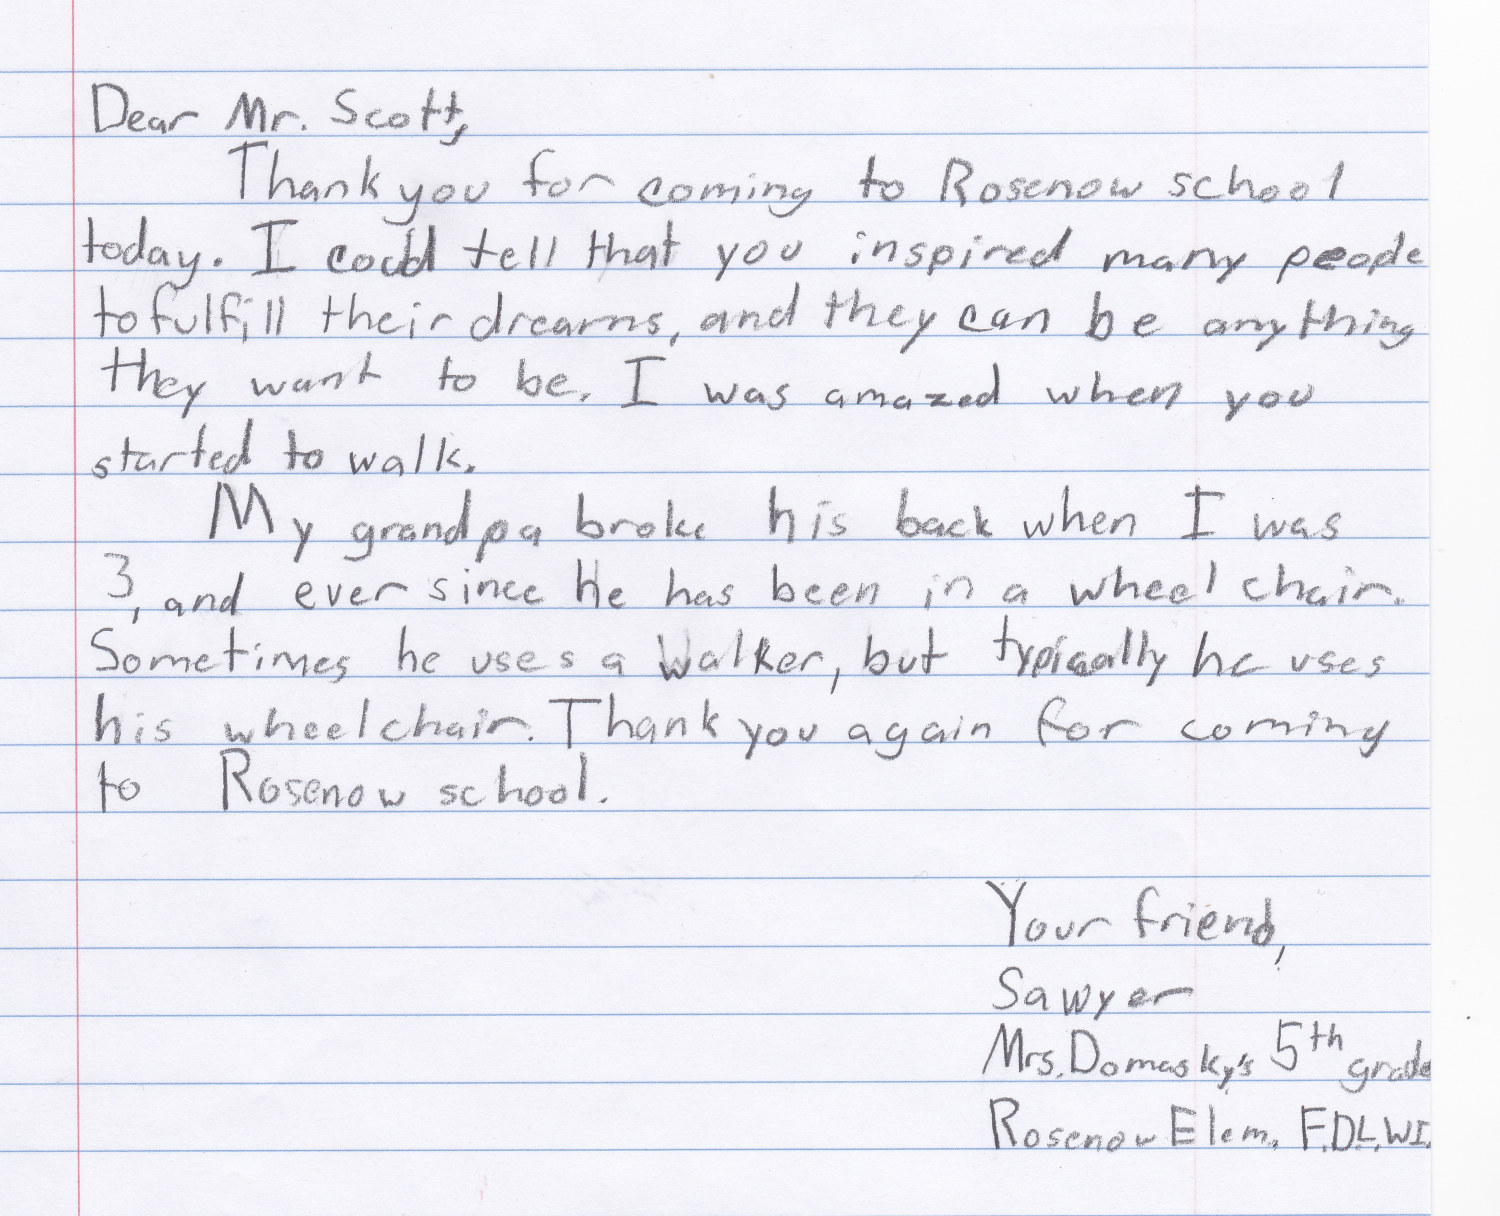 Dear Mr. Scott,
Thank you for coming to Rosenow school
today. I could tell that you inspired many people
to fulfill their dreams, and they can be anything
they want to be. I was amazed when you
started to walk.
My grandpa broke his back when I was
3, and ever since he has been in a wheel chair.
Sometimes he uses a walker, but typically he uses
his wheelchair. Thank you again for coming
to Rosenow school.
Your friend,
Sawyer
Mrs. Domasky's 5th grade
Rosenow Elem. F.D.L. WI.